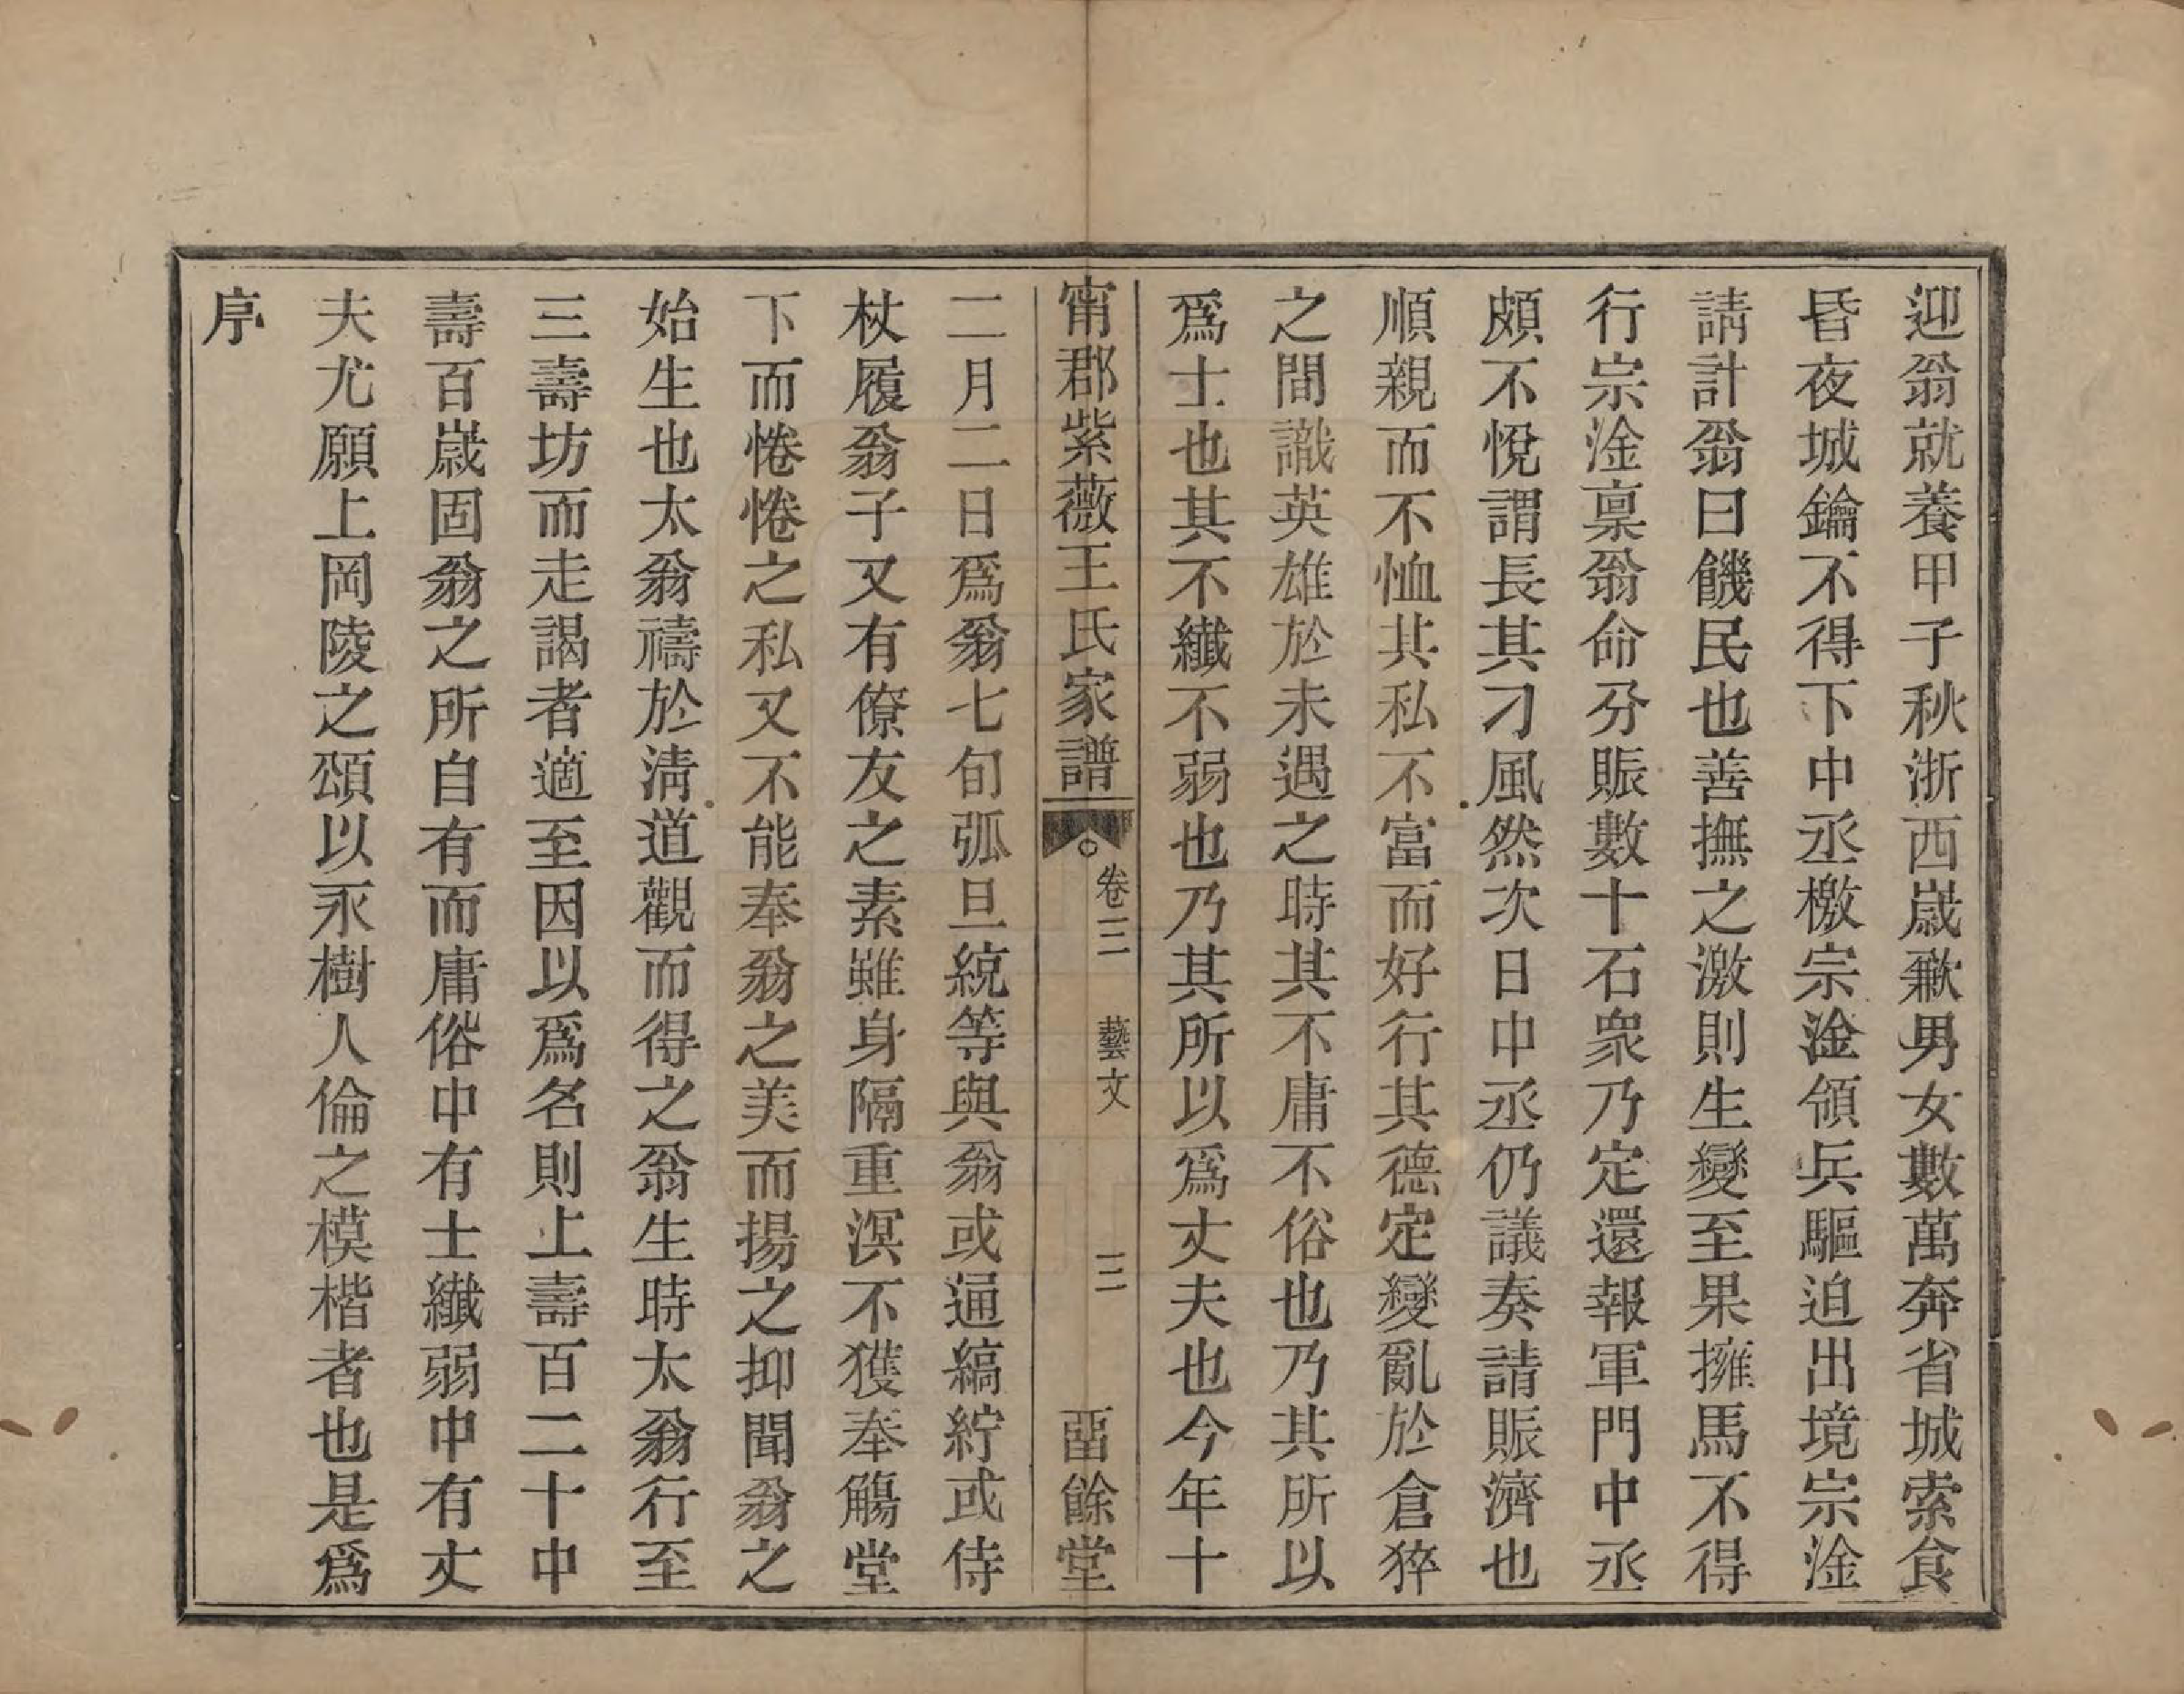 迎翁就養甲子秋浙西嵗歉男女數萬奔省城索食
昏夜城鑰不得下中丞檄宗淦領兵驅迫出境宗淦
請計翁曰饑民也善撫之激則生變至果擁馬不得
行宗淦稟翁命分賑數十石衆乃定還報軍門中丞
頗不悅謂長其刁風然次日中丞仍議奏請賑濟也
順親而不恤其私不富而好行其德定變亂於倉猝
之間識英雄於未遇之時其不庸不俗也乃其所以
爲士也其不纖不弱也乃其所以爲丈夫也今年十
甯郡紫薇王氏家譜 卷三 藝文 三 畱餘堂
二月二日爲翁七旬弧旦統等與翁或通縞紵或侍
杖履翁子又有僚友之素雖身隔重溟不獲奉觴堂
下而惓惓之私又不能奉翁之美而揚之抑聞翁之
始生也太翁禱於淸道觀而得之翁生時太翁行至
三壽坊而走謁者適至因以爲名則上壽百二十中
壽百嵗固翁之所自有而庸俗中有士纖弱中有丈
夫尤願上岡陵之頌以永樹人倫之模楷者也是爲
序